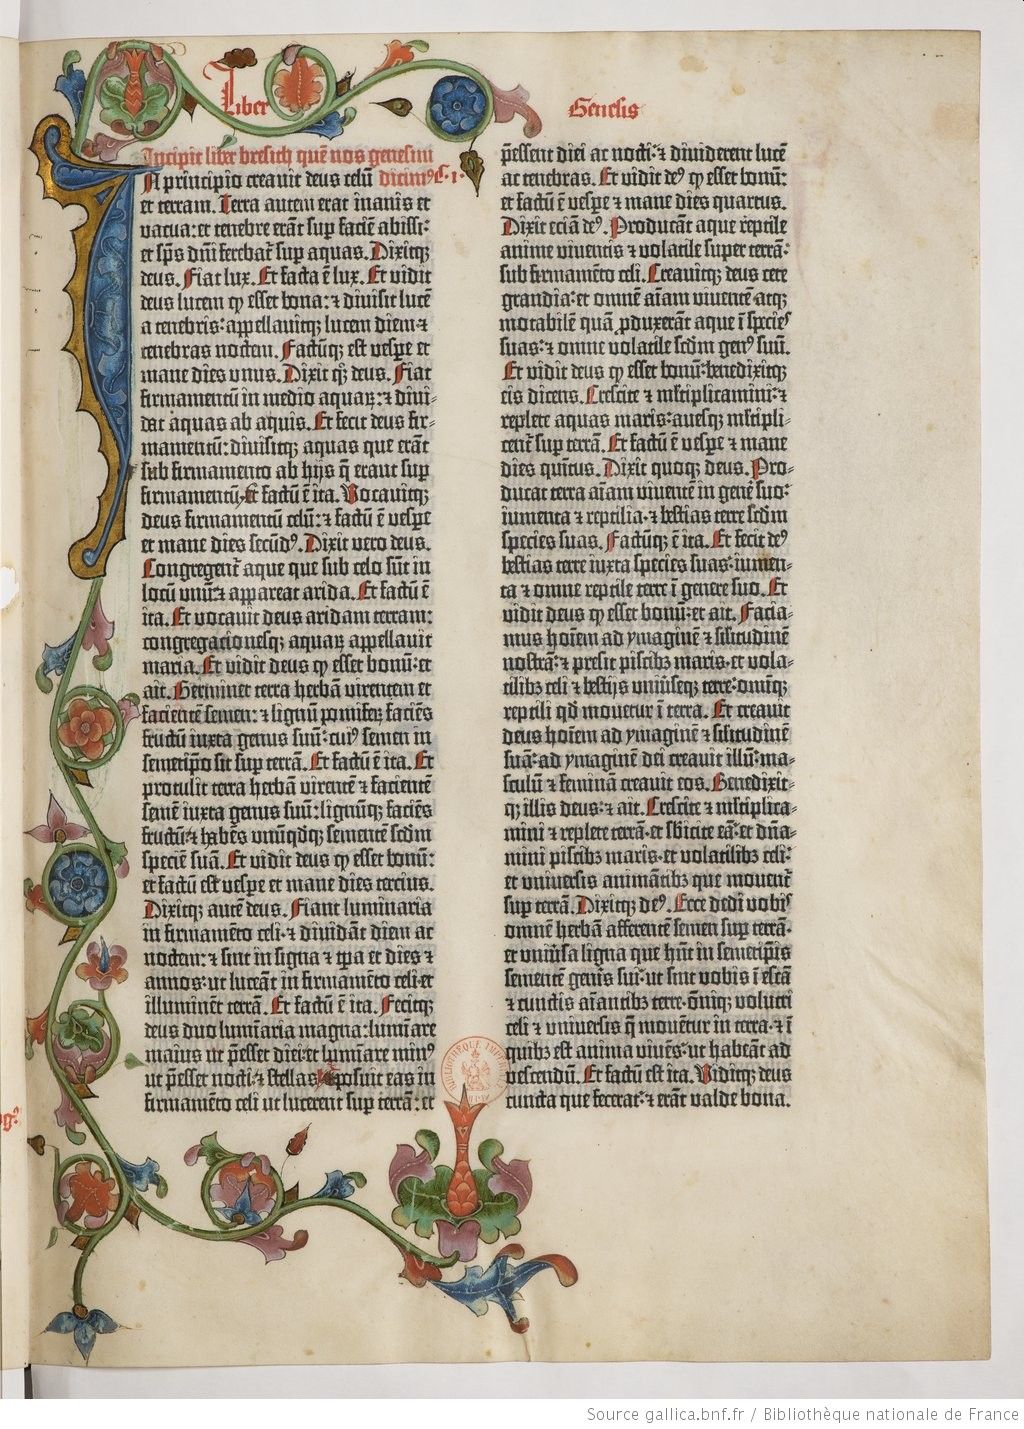 Liber Genesis
Incipit liber bresich quē nos genesim
In principio creavit deus celū dicimꝰ C. i.
et terram. Terra autem erat inanis et
vacua: et tenebre erāt sup faciē abissi:
et sp̄s dn̄i ferebat̄ sup aquas. Dixitqꝫ
deus. Fiat lux. Et facta ē lux. Et vidit
deus lucem ꝙ esset bona: ⁊ divisit lucē
a tenebris: appellavitqꝫ lucem diem ⁊
tenebras noctem. Factūqꝫ est vesꝑe et
mane dies unus. Dixit qꝫ deus. Fiat
firmamentū in medio aquaꝝ: ⁊ divi-
dat aquas ab aquis. Et fecit deus fir-
mamentū: divisitqꝫ aquas que erāt
sub firmamento ab hijs q̄ erant sup
firmamentū. Et factū ē ita. Vocavitqꝫ
deus firmamentū celū: ⁊ factū ē vesꝑe
et mane dies secūdꝰ. Dixit vero deus.
Congregent̄ aque que sub celo sūt in
locū unū: ⁊ appareat arida. Et factū ē
ita. Et vocavit deus aridam terram:
congregacionesqꝫ aquaꝝ appellavit
maria. Et vidit deus ꝙ esset bonū: et
ait. Germinet terra herbā virentem et
facientē semen: ⁊ lignū pomifeꝝ faciēs
fructū iuxta genus suū: cuiꝰ semen in
semetip̄o sit sup terrā. Et factū ē ita. Et
protulit terra herbā virentē ⁊ facientē
semē iuxta genus suū: lignūqꝫ faciēs
fructū: ⁊ habēs unūqd̄qꝫ sementē scd̄m
speciē suā. Et vidit deus ꝙ esset bonū:
et factū est vesꝑe et mane dies tercius.
Dixitqꝫ autē deus. Fiant luminaria
in firmamēto celi · ⁊ dividāt diem ac
noctem: ⁊ sint in signa ⁊ tꝑa et dies ⁊
annos: ut luceāt in firmamēto celi et
illuminēt terrā. Et factū ē ita. Fecitqꝫ
deus duo lumīaria magna: lumīare
maius ut p̄esset diei: et lumīare minꝰ
ut p̄esset nocti: ⁊ stellas ⁊ posuit eas in
firmamēto celi ut lucerent sup terrā: et
p̄essent diei ac nocti: ⁊ dividerent lucē
ac tenebras. Et vidit deꝰ ꝙ esset bonū:
et factū ē vesꝑe ⁊ mane dies quartus.
Dixit eciā deꝰ. Producāt aque reptile
anime viventis ⁊ volatile super terrā:
sub firmamēto celi. Creavitqꝫ deus cete
grandia: et omnē aīam viventē atqꝫ
motabilē quā ꝓduxerāt aque ī species
suas: ⁊ omne volatile scd̄m genꝰ suū.
Et vidit deus ꝙ esset bonū: benedixitqꝫ
eis dicens. Crescite ⁊ ml̄tiplicamini: ⁊
replete aquas maris: avesqꝫ ml̄tipli-
cent̄ sup terrā. Et factū ē vesꝑe ⁊ mane
dies quītus. Dixit quoqꝫ deus. Pro-
ducat terra aīam viventē in genē suo:
iumenta ⁊ reptilia · ⁊ bestias terre scd̄m
species suas. Factūqꝫ ē ita. Et fecit deꝰ
bestias terre iuxta species suas: iumen-
ta ⁊ omne reptile terre ī genere suo. Et
vidit deus ꝙ esset bonū: et ait. Facia-
mus hoīem ad ymaginē ⁊ silitudinē
nostrā · ⁊ presit piscibꝫ maris · et vola-
tilibꝫ celi ⁊ bestijs univ̄seqꝫ terre: omīqꝫ
reptili qd̄ movetur ī terra. Et creavit
deus hoīem ad ymaginē ⁊ silitudinē
suā: ad ymaginē dei creavit illū: ma-
sculū ⁊ feminā creavit eos. Benedixit-
qꝫ illis deus: ⁊ ait. Crescite ⁊ ml̄tiplica-
mini ⁊ replete terrā · et sb̄icite eā: et dn̄a-
mini piscibꝫ maris · et volatilibꝫ celi:
et universis animātibꝫ que movent̄
sup terrā. Dixitqꝫ deꝰ. Ecce dedi vobis
omnē herbā afferentē semen sup terrā ·
et univ̄sa ligna que hn̄t in semetip̄is
sementē genīs sui: ut sint vobis ī escā
⁊ cunctis aīantibꝫ terre · om̄iqꝫ volucri
celi ⁊ universis q̄ movētur in terra · ⁊ ī
quibꝫ est anima vivēs: ut habeāt ad
vescendū. Et factū est ita. Viditqꝫ deus
cuncta que fecerat: ⁊ erāt valde bona.
Source gallica.bnf.fr / Bibliothèque nationale de France